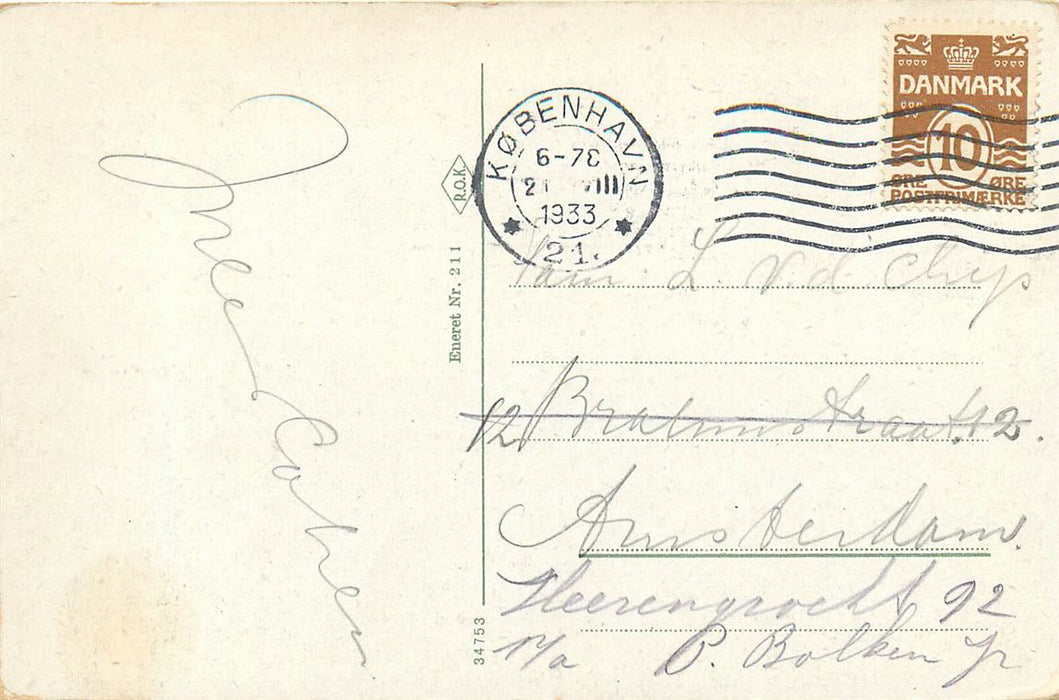 DANMARK
10
ØRE ØRE
POSTFRIMÆRKE
KØBENHAVN
6-7E
21 VIII
1933
21.
R.O.K.
Eneret Nr. 211
34753
Cohen
Fam L. v.d. Chijs
12 Brahmsstraat 12.
Amsterdam.
Heerengracht 92
P. Bolken Jr